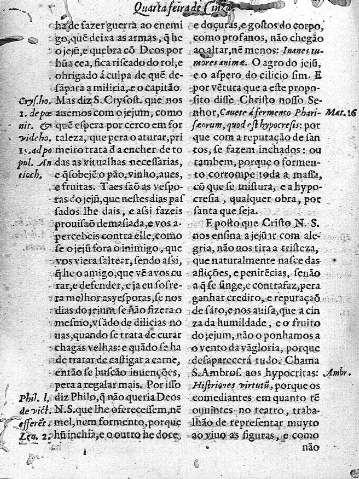 Quarta feira de Cinza.
ha de fazer guerra ao enemi
go, quë deixa as armas, q̃ he
o jejũ, e quebra cõ Deos por
hũa cea, fica riscado do rol, e
obrigado á culpa de quë de-
sãpara a milicia, e o capitão.
Mas diz S. Crysost. que nos
avemos com o jejum, como
quë espera por certo em for
taleza, que pera o aturar, pri
meiro trata ã a encher de to
das as vitualhas necessarias,
e q̃ sobejë o pão, vinho, aves,
e fruitas. Taes sãõ as vespo-
ras do jejũ, que nestes dias pas
sados lhe dais, e assi fazeis
prouisão demasiada, e vos a-
percebeis contra elle, como
se o jejũ fora o inimigo, que
vos viera saltear, sendo assi,
q̃ he o amigo, que vë a vos cu
rar, e defender, e ja eu sofre-
ra melhor as vesporas, se nos
dias do jejum se não fizera o
mesmo, vsado de dilicias no
uas, quando se trata de curar
chagas velhas: e quãdo se ha
de tratar de castigar a carne,
então se buscão inuenções,
pera a regalar mais. Por isso
diz Philo, q̃ não queria Deos
N.S. que lhe oferecessem, në
mel, nem formento, porque
hũ incha, e o outro he doce,
Crysho.
1. de pœ
nit. &
viri ho.
1. ad po
pul. An
tioch.
Phil. l.
de vict.
Leu. 2.
e doçuras, e gostos do corpo,
como profanos, não chegão
ao altar, në menos: Inanes tu-
mores animæ. O agro do jejũ,
e o aspero do cilicio sim. E
por vëtura que a este propo-
sito disse Christo nosso Se-
nhor, Cauete à fermento Phari-
sæorum, quod est hypocresis: por
que com a reputação de san
tos, se fazem inchados: ou
tambem, porque o formen-
to corrompe toda a massa,
cõ que se mistura, e a hypo-
cresia, qualquer obra, por
santa que seja.
E posto que Cristo N. S.
nos ensina a jejũar com ale-
gria, não nos tira a tristeza,
que naturalmente nasce das
aflições, e penitëcias, senão
a q̃ se finge, e contrafaz, pera
ganhar credito, e reputaçaõ
de sãto, e nos auisa, que a cin
za da humildade, e o fruito
do jejum, não o ponhamos a
o vento da vãgloria, porque
desaparecerá tudo. Chama
S. Ambros. aos hypocritas:
Histriones virtutũ, porque os
comediantes em quanto të
ouuintes no teatro, traba-
lhão de representar muyto
ao viuo as figuras, e como
não
Mat. 16
Ambr.